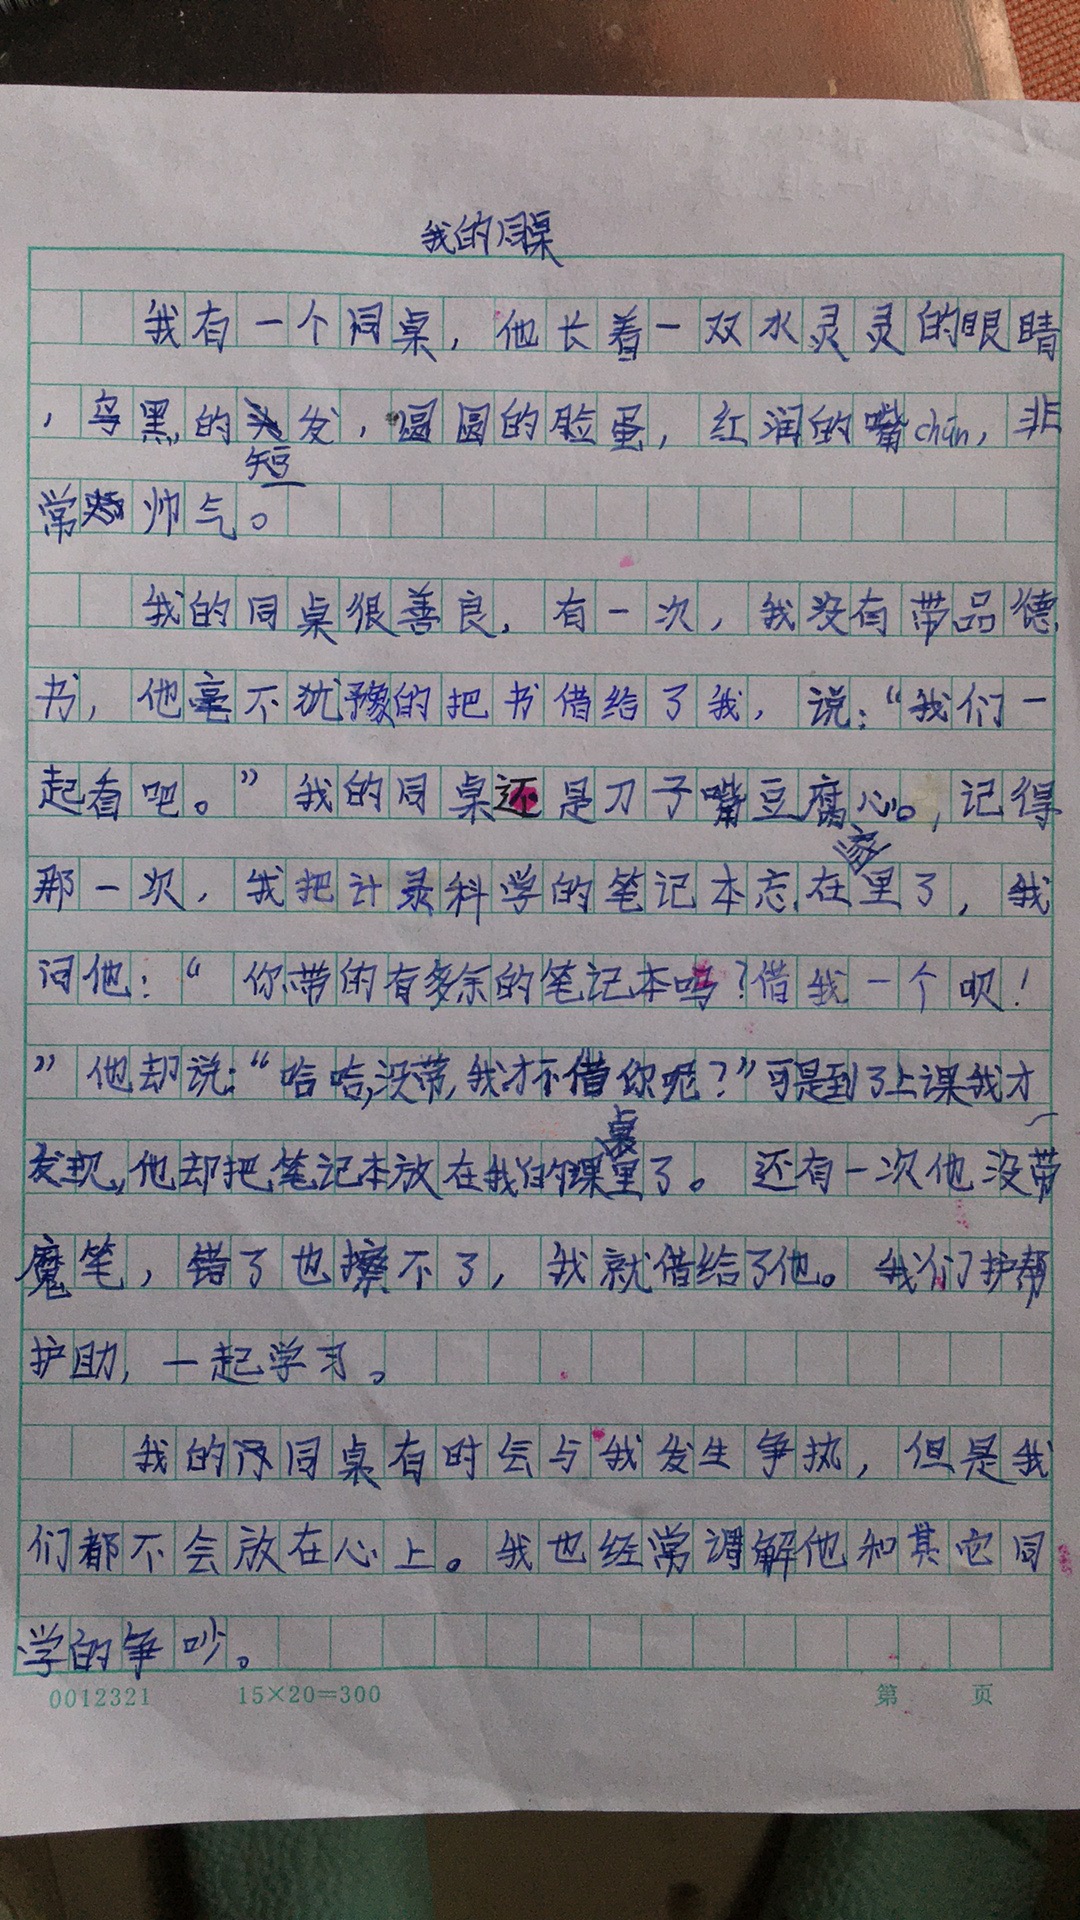 我的同桌
我有一个同桌，他长着一双水灵灵的眼睛
，乌黑的短发，圆圆的脸蛋，红润的嘴chún，非
常帅气。
我的同桌很善良，有一次，我没有带品德
书，他毫不犹豫的把书借给了我，说：“我们一
起看吧。”我的同桌还是刀子嘴豆腐心。，记得
那一次，我把计录科学的笔记本忘在家里了，我
问他：“你带的有多余的笔记本吗？借我一个呗！
”他却说：“哈哈，没带，我才不借你呢？”可是到了上课我才
发现，他却把笔记本放在我的课桌里了。还有一次他没带
魔笔，错了也擦不了，我就借给了他。我们护帮
护助，一起学习。
我的同桌有时会与我发生争执，但是我
们都不会放在心上。我也经常调解他和其它同
学的争吵。
0012321 15×20=300 第 页